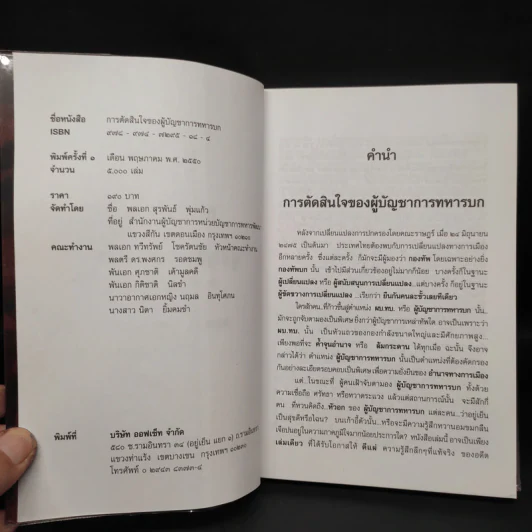 ชื่อหนังสือ การตัดสินใจของผู้บัญชาการทหารบก
ISBN ๙๗๘ - ๙๗๔ - ๗๒๙๕ - ๑๘ - ๔
พิมพ์ครั้งที่ ๑ เดือน พฤษภาคม พ.ศ. ๒๕๕๐
จำนวน ๕,๐๐๐ เล่ม
ราคา ๑๙๐ บาท
จัดทำโดย ชื่อ พลเอก สุรพันธ์ พุ่มแก้ว
ที่อยู่ สำนักงานผู้บัญชาการหน่วยบัญชาการทหารพัฒนา
แขวงสีกัน เขตดอนเมือง กรุงเทพฯ ๑๐๒๑๐
คณะทำงาน พลเอก ทวีทรัพย์ โชครัตนชัย หัวหน้าคณะทำงาน
พลตรี ดร.พงศกร รอดชมพู
พันเอก ศุภชาติ เต้ามูลคดี
พันเอก กิติชาติ นิลขำ
นาวาอากาศเอกหญิง นฤมล อินทุโตภน
นางสาว นิดา ยิ้มคมขำ
พิมพ์ที่ บริษัท ออฟเซ็ท จำกัด
๕๘๐ ซ.รามอินทรา ๓๔ (อยู่เย็น แยก ๑) ถ.รามอินทรา
แขวงท่าแร้ง เขตบางเขน กรุงเทพฯ ๑๐๒๓๐
โทรศัพท์ ๐ ๒๙๔๓ ๘๓๗๓-๔
คำนำ
การตัดสินใจของผู้บัญชาการทหารบก
หลังจากเปลี่ยนแปลงการปกครองโดยคณะราษฎร์ เมื่อ ๒๔ มิถุนายน
๒๔๗๕ เป็นต้นมา ประเทศไทยต้องพบกับการเปลี่ยนแปลงทางการเมือง
อีกหลายครั้ง ซึ่งแต่ละครั้ง ก็มักจะมีผู้มองว่า กองทัพ โดยเฉพาะอย่างยิ่ง
กองทัพบก นั้น เข้าไปมีส่วนเกี่ยวข้องอยู่ไม่มากก็น้อย บางครั้งก็ในฐานะ
ผู้เปลี่ยนแปลง หรือ ผู้สนับสนุนการเปลี่ยนแปลง ..แต่บางครั้ง ก็อยู่ในฐานะ
ผู้ขัดขวางการเปลี่ยนแปลง ...เรียกว่า ยืนกันคนละขั้วเลยทีเดียว
ใครสักคน..ที่ก้าวขึ้นสู่ตำแหน่ง ผบ.ทบ. หรือ ผู้บัญชาการทหารบก นั้น..
มักจะถูกจับตามองเป็นพิเศษยิ่งกว่าผู้บัญชาการเหล่าทัพใด อาจเป็นเพราะว่า
ผบ.ทบ. นั้น เป็นหัวแถวของกองกำลังขนาดใหญ่และมีศักยภาพสูง...
เพียงพอที่จะ ค้ำจุนอำนาจ หรือ ล้มกระดาน ได้ทุกเมื่อ ฉะนั้น จึงอาจ
กล่าวได้ว่า ตำแหน่ง ผู้บัญชาการทหารบก นั้นเป็นตำแหน่งที่ต้องคัดกรอง
กันอย่างละเอียดรอบคอบเป็นพิเศษ เพื่อความยั่งยืนของ อำนาจทางการเมือง
แต่..ในขณะที่ ผู้คนเฝ้าจับตามอง ผู้บัญชาการทหารบก ทั้งด้วย
ความเชื่อถือ ศรัทธา หรือหวาดระแวง แล้วแต่สถานการณ์นั้น จะมีสักกี่
คน ที่หวนคิดถึง..หัวอก ของ ผู้บัญชาการทหารบก แต่ละคน..ว่าอยู่เย็น
เป็นสุขดีหรือไฉน? บนเก้าอี้ตัวนั้น..หรือจะมีความรู้สึกหวานอมขมกลืน
เจือปนอยู่ในความภาคภูมิใจมากน้อยประการใด? หนังสือเล่มนี้ อาจเป็นเพียง
เล่มเดียว ที่ได้รับโอกาสให้ ตีแผ่ ความรู้สึกลึกๆที่แท้จริง ของอดีต